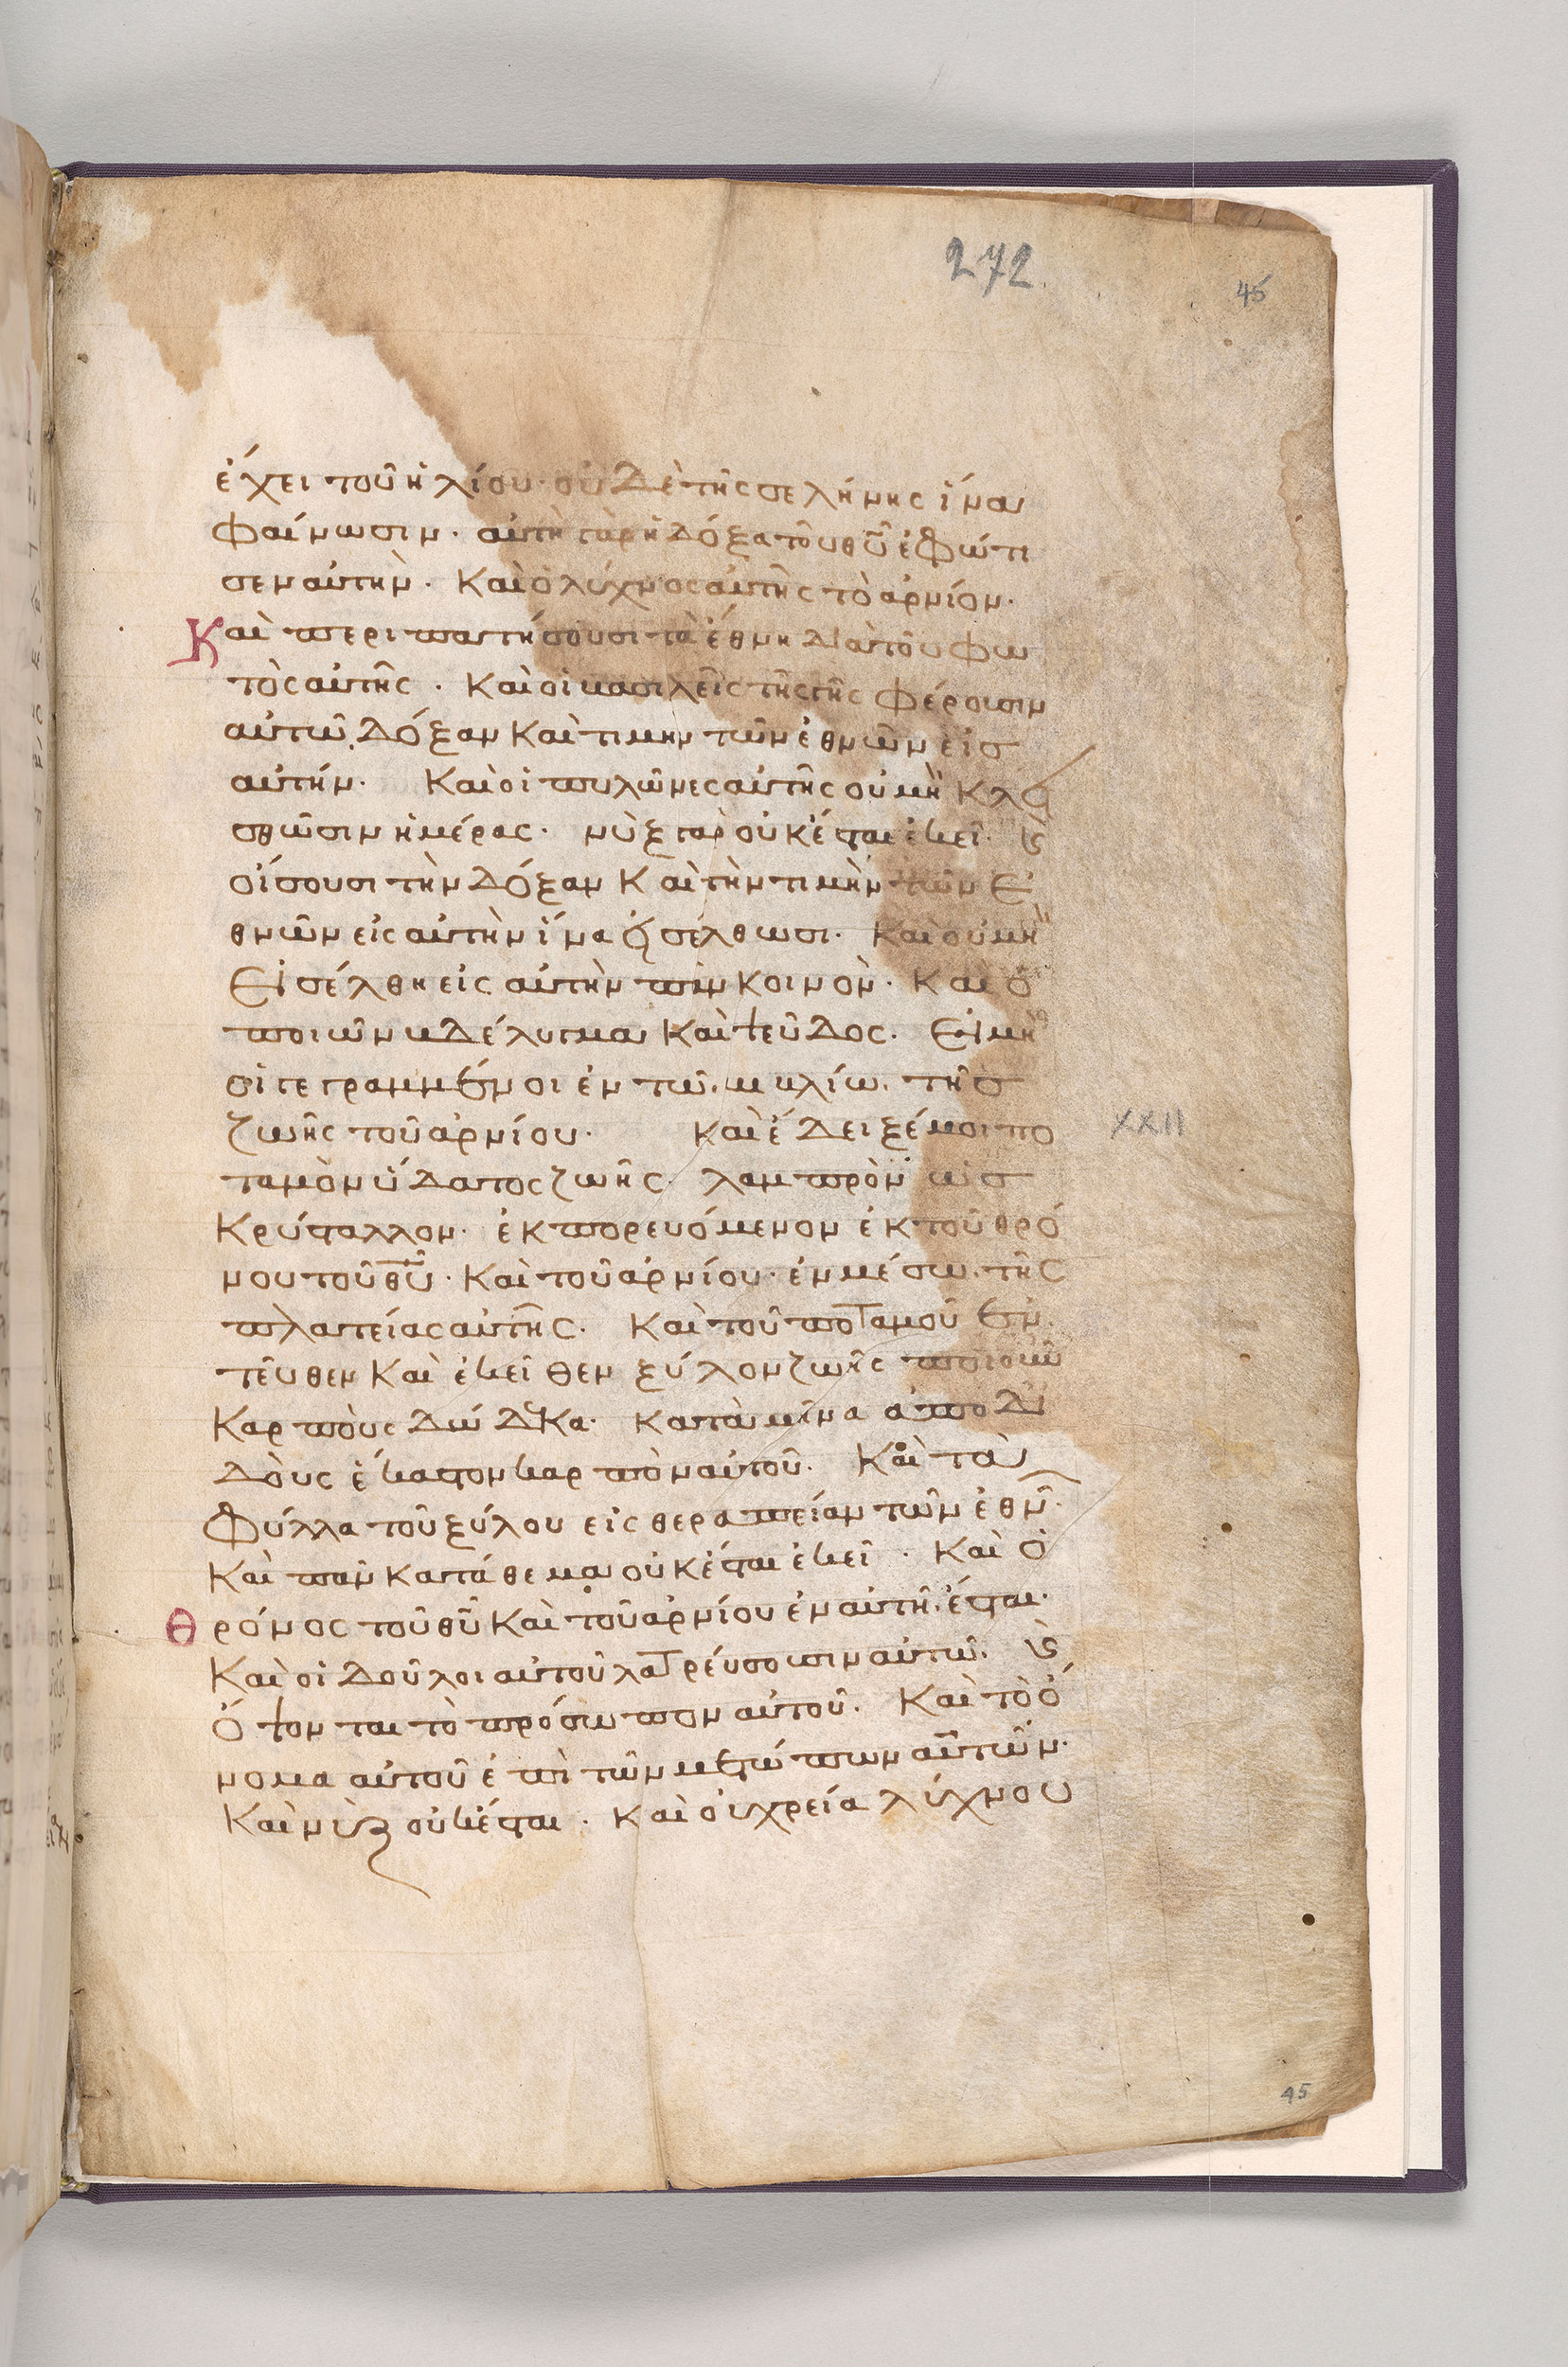 272
45
ἔχει τοῦ ἡλίου· οὐδὲ τῆς σελήνης ἵνα
φαίνωσιν· αὐτὴ γὰρ ἡ δόξα τοῦ θῦ ἐφώτι
σεν αὐτὴν· Καὶ ὁ λύχνος αὐτῆς τὸ ἀρνίον·
Καὶ περιπατήσουσι τὰ ἔθνη διὰ τοῦ φω
τὸς αὐτῆς· Καὶ οἱ βασιλεῖς τῆς γῆς φέρουσιν
αὐτῶ δόξαν Καὶ τιμὴν τῶν ἐθνῶν εἰς
αὐτήν· Καὶ οἱ πυλῶνες αὐτῆς οὐ μὴ Κλει
σθῶσιν ἡμέρας· νὺξ γὰρ οὐκ ἔσται ἐκεῖ· ϗ
οἴσουσι τὴν δόξαν Καὶ τὴν τιμὴν τῶν ἐ
θνῶν εἰς αὐτὴν ἵνα εἰσέλθωσι· Καὶ οὐ μὴ
Εἰσέλθη εἰς αὐτὴν πᾶν Κοινὸν· Καὶ ὁ
ποιῶν βδέλυγμα Καὶ ψεῦδος· Εἰ μὴ
οἱ γεγραμμένοι ἐν τῶ βιβλίω τῆς
ζωῆς τοῦ ἀρνίου· Καὶ ἔδειξέ μοι πο
XXII
ταμὸν ὕδατος ζωῆς· λαμπρὸν ὡς
Κρύσταλλον· ἐκπορευόμενον ἐκ τοῦ θρό
νου τοῦ θῦ· Καὶ τοῦ ἀρνίου· ἐν μέσω τῆς
πλατείας αὐτῆς· Καὶ τοῦ ποταμοῦ ἐν
τεῦθεν Καὶ ἐκεῖθεν ξύλον ζωῆς ποιοῦν
Καρποὺς δώδεκα· Κατὰ μῆνα ἀποδι
δοὺς ἕκαστον καρπὸν αὐτοῦ· Καὶ τὰ
Φύλλα τοῦ ξύλου εἰς θεραπείαν τῶν ἐθνῶν·
Καὶ πᾶν κατάθεμα οὐκ ἔσται ἐκεῖ· Καὶ ὁ
Θρόνος τοῦ θῦ Καὶ τοῦ ἀρνίου ἐν αὐτῆ ἔσται·
Καὶ οἱ δοῦλοι αὐτοῦ λατρεύσουσιν αὐτῶ· ϗ
Ὄψονται τὸ πρόσωπον αὐτοῦ· Καὶ τὸ ὄ
νομα αὐτοῦ ἐπὶ τῶν μετώπων αὐτῶν·
Καὶ νὺξ οὐκ ἔσται· Καὶ οὐ χρεία λύχνου
45